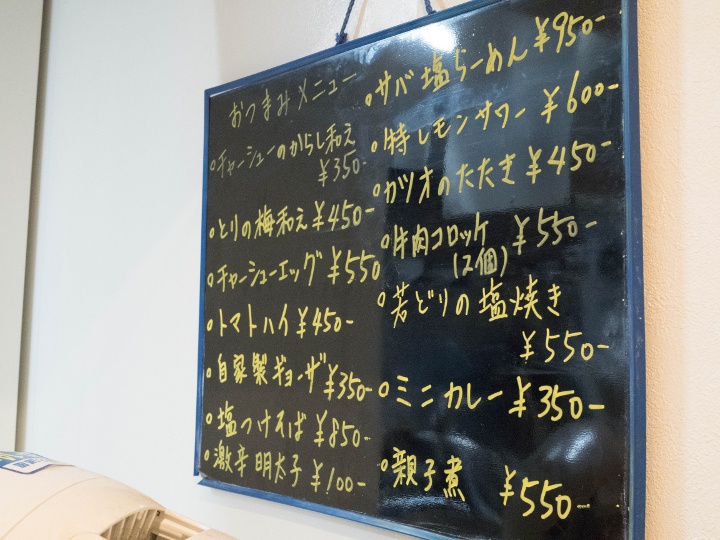 おつまみメニュー
○チャーシューのからし和え
¥350-
○とりの梅和え ¥450-
○チャーシューエッグ ¥550
○トマトハイ ¥450-
○自家製ギョーザ ¥350-
○塩つけそば ¥850-
○激辛明太子 ¥100-
○サバ塩らーめん ¥950-
○特レモンサワー ¥600-
○カツオのたたき ¥450-
○牛肉コロッケ ¥550-
(2個)
○若どりの塩焼き
¥550-
○ミニカレー ¥350-
○親子煮 ¥550-